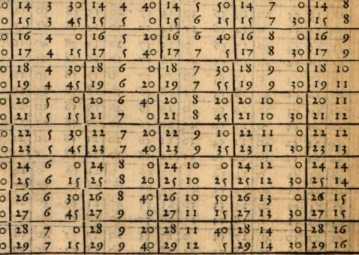 0 14 3 30 14 4 40 14 5 50 14 7 0 14 8
0 15 3 45 15 5 0 15 6 15 15 7 30 15 8
0 16 4 0 16 5 20 16 6 40 16 8 0 16 9
0 17 4 15 17 5 40 17 7 5 17 8 30 17 9
0 18 4 30 18 6 0 18 7 30 18 9 0 18 10
0 19 4 45 19 6 20 19 7 55 19 9 30 19 11
0 20 5 0 20 6 40 20 8 20 20 10 0 20 11
0 21 5 15 21 7 0 21 8 45 21 10 30 21 12
0 22 5 30 22 7 20 22 9 10 22 11 0 22 12
0 23 5 45 23 7 40 23 9 35 23 11 30 23 13
0 24 6 0 24 8 0 24 10 0 24 12 0 24 14
0 25 6 15 25 8 20 25 10 25 25 12 30 25 14
0 26 6 30 26 8 40 26 10 50 26 13 0 26 15
0 27 6 45 27 9 0 27 11 15 27 13 30 27 15
0 28 7 0 28 9 20 28 11 40 28 14 0 28 16
0 29 7 15 29 9 40 29 12 5 29 14 30 29 16